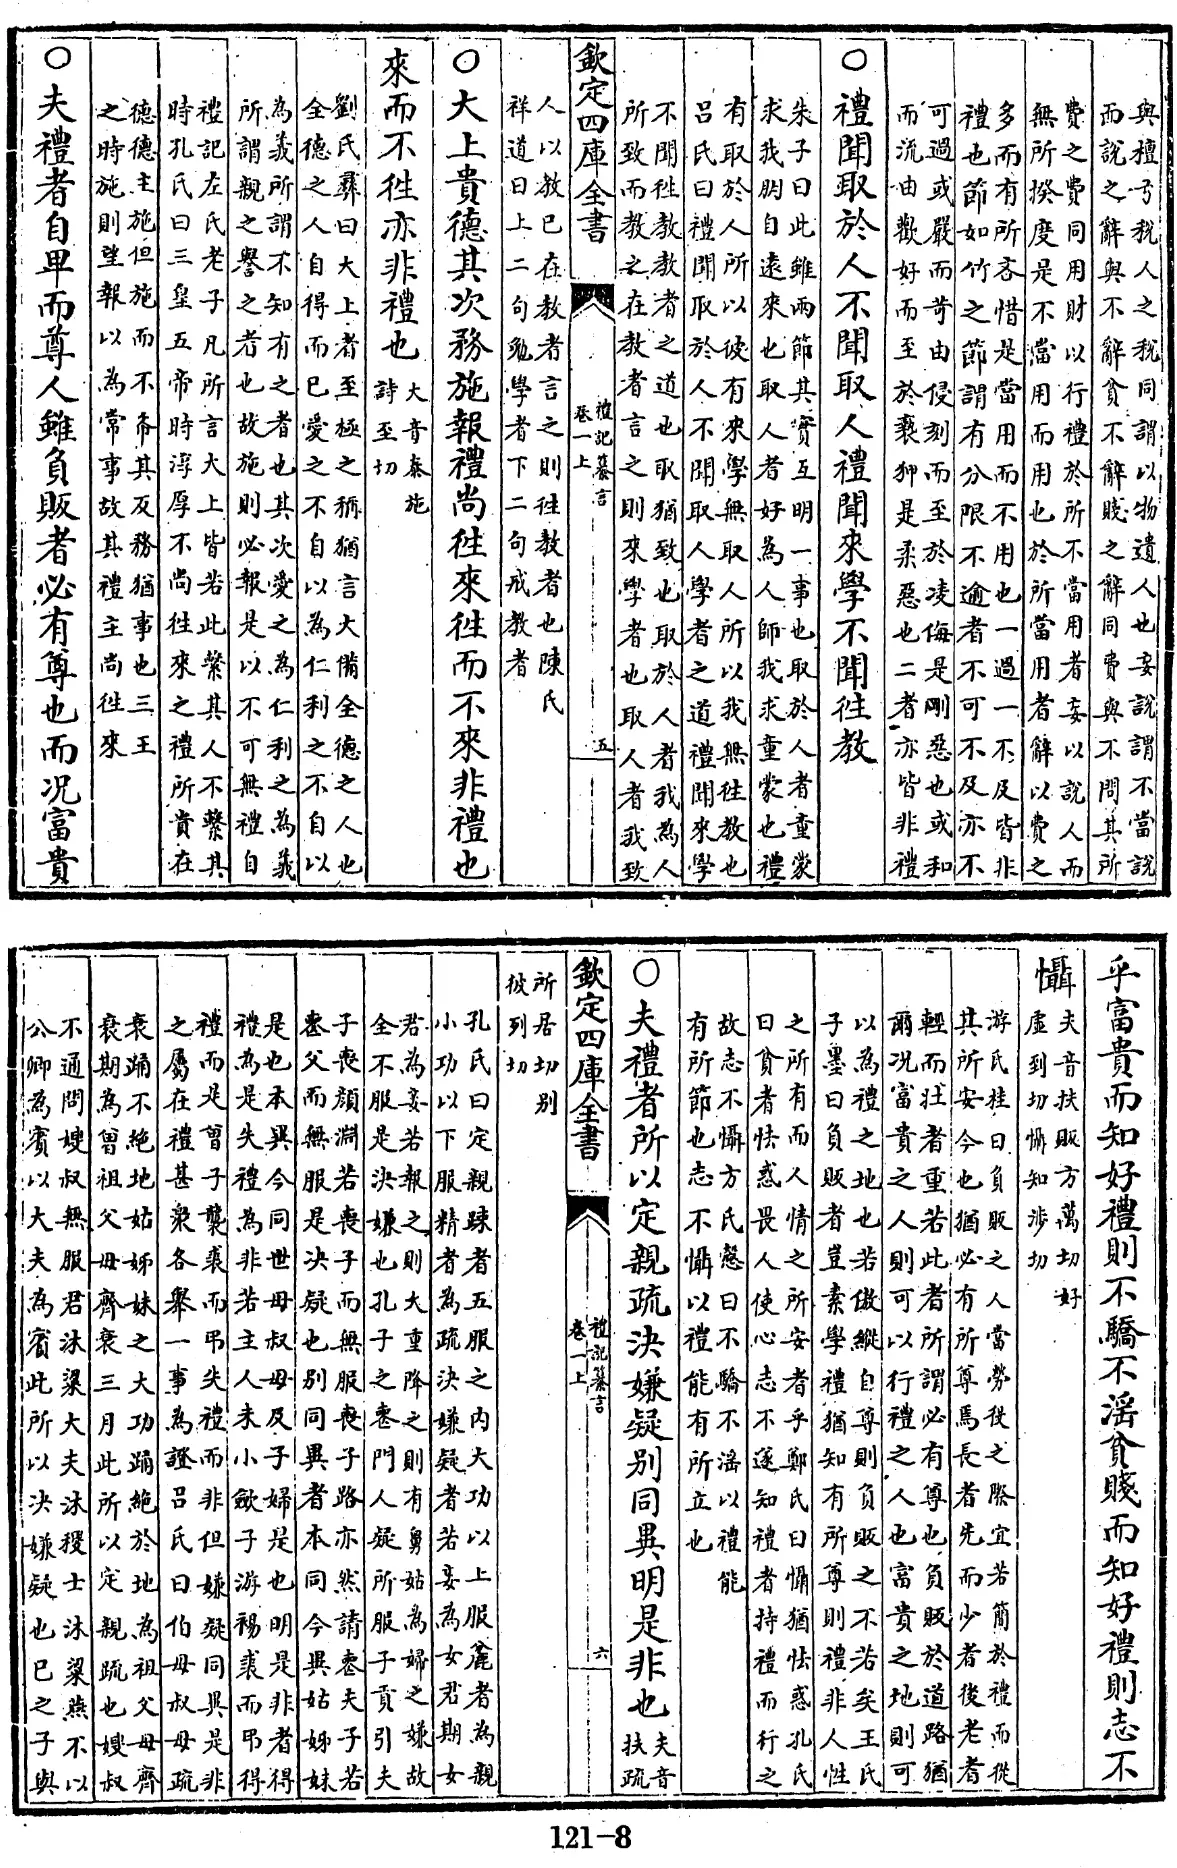 與檀弓稅人之稅同謂以物遺人也妄說謂不當說
而說之辭與不辭貧不辭賤之辭同費與不問其所
費之費同用財以行禮於所不當用者妄以說人而
無所揆度是不當用而用也於所當用者辭以費之
多而有所吝惜是當用而不用也一過一不及皆非
禮也節如竹之節謂有分限不逾者不可不及亦不
可過或嚴而苛由侵刻而至於凌侮是剛惡也或和
而流由歡好而至於褻狎是柔惡也二者亦皆非禮
○禮聞取於人不聞取人禮聞來學不聞往教
朱子曰此雖兩節其實互明一事也取於人者童蒙
求我朋自遠來也取人者好為人師我求童蒙也禮
有取於人所以彼有來學無取人所以我無往教也
呂氏曰禮聞取於人不聞取人學者之道禮聞來學
不聞往教教者之道也取猶致也取於人者我為人
所致而教之在教者言之則來學者也取人者我致
欽定四庫全書
禮記纂言
卷一上
五
人以教已在教者言之則往教者也陳氏
祥道曰上二句勉學者下二句戒教者
○大上貴德其次務施報禮尚往來往而不來非禮也
來而不往亦非禮也
大音泰施
詩至切
劉氏彞曰大上者至極之稱猶言大備全德之人也
全德之人自得而已愛之不自以為仁利之不自以
為義所謂不知有之者也其次愛之為仁利之為義
所謂親之譽之者也故施則必報是以不可無禮自
禮記左氏老子凡所言大上皆若此繫其人不繫其
時孔氏曰三皇五帝時淳厚不尚往來之禮所貴在
德德主施但施而不希其反務猶事也三王
之時施則望報以為常事故其禮主尚往來
○夫禮者自卑而尊人雖負販者必有尊也而况富貴
乎富貴而知好禮則不驕不淫貧賤而知好禮則志不
懾
夫音扶販方萬切好
虛到切懾知涉切
游氏桂曰負販之人當勞役之際宜若簡於禮而從
其所安今也猶必有所尊焉長者先而少者後老者
輕而壯者重若此者所謂必有尊也負販於道路猶
爾况富貴之人則可以行禮之人也富貴之地則可
以為禮之地也若傲縱自尊則負販之不若矣王氏
子墨曰負販者豈素學禮猶知有所尊則禮非人性
之所有而人情之所安者乎鄭氏曰懾猶怯惑孔氏
曰貧者怯惑畏人使心志不遂知禮者持禮而行之
故志不懾方氏慤曰不驕不淫以禮能
有所節也志不懾以禮能有所立也
○夫禮者所以定親疏決嫌疑別同異明是非也
夫音
扶疏
欽定四庫全書
禮記纂言
卷一上
六
所居切別
彼列切
孔氏曰定親踈者五服之內大功以上服麄者為親
小功以下服精者為疏決嫌疑者若妾為女君期女
君為妾若報之則大重降之則有舅姑為婦之嫌故
全不服是決嫌也孔子之喪門人疑所服子貢引夫
子喪顏淵若喪子而無服喪子路亦然請喪夫子若
喪父而無服是决疑也別同異者本同今異姑姊妹
是也本異今同世母叔母及子婦是也明是非者得
禮為是失禮為非若主人未小斂子游裼裘而弔得
禮而是曾子襲裘而弔失禮而非但嫌疑同異是非
之屬在禮甚衆各舉一事為證呂氏曰伯母叔母疏
衰踊不絶地姑姊妹之大功踊絶於地為祖父母齊
衰期為曾祖父母齊衰三月此所以定親疏也嫂叔
不通問嫂叔無服君沐粱大夫沐稷士沐粱燕不以
公卿為賓以大夫為賓此所以决嫌疑也已之子與
121-8